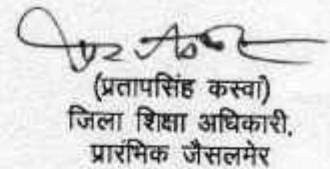 (प्रतापसिंह कस्वा)
जिला शिक्षा अधिकारी,
प्रारंभिक जैसलमेर